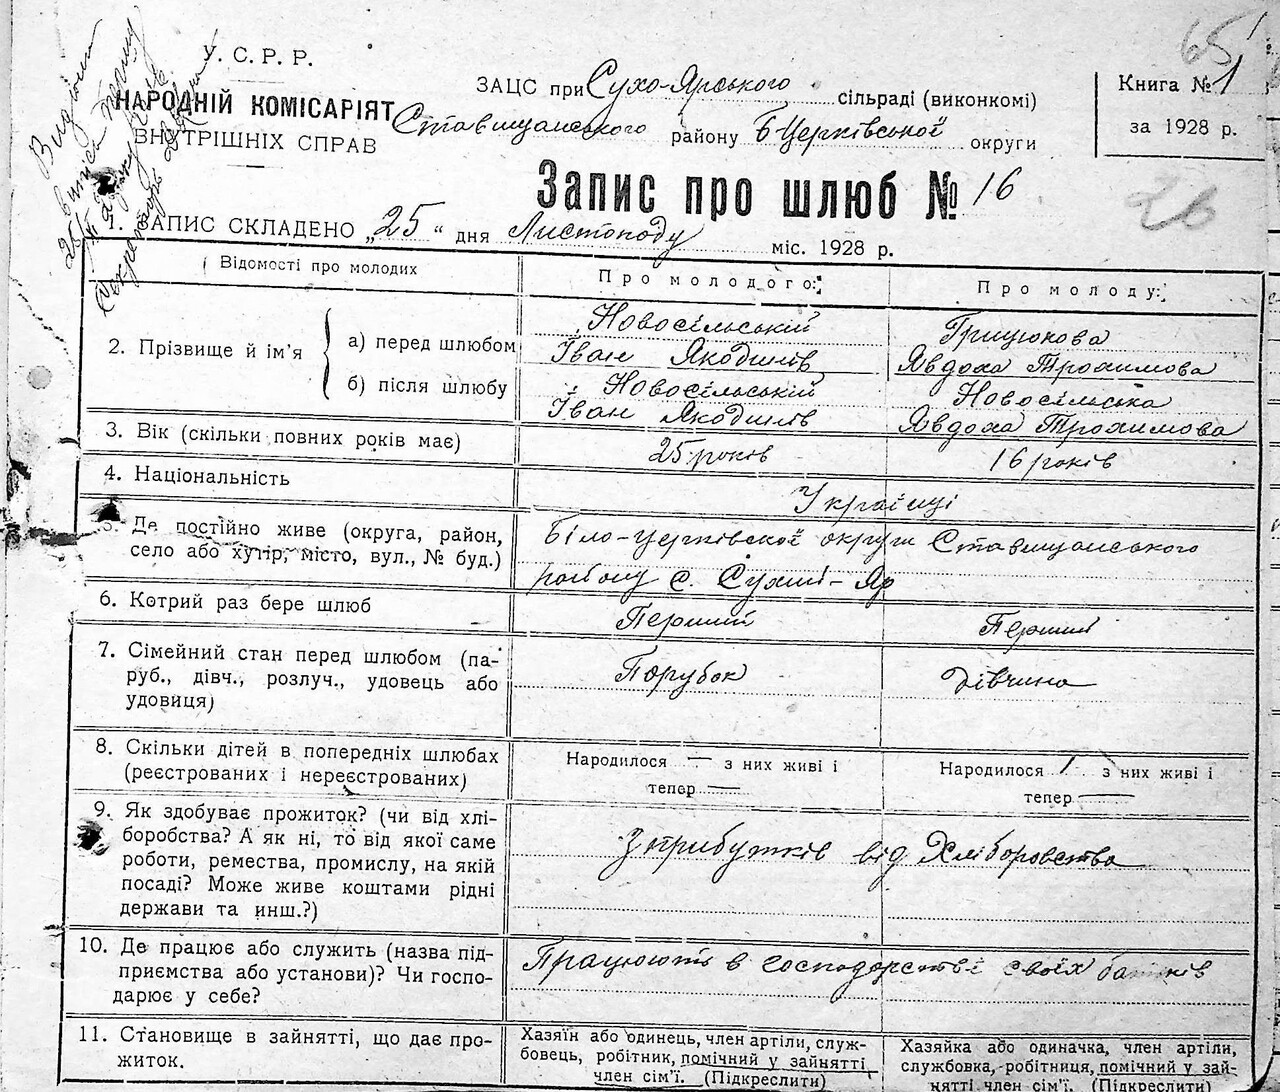 65
У. С. Р. Р.
НАРОДНІЙ КОМІСАРІЯТ
ВНУТРІШНІХ СПРАВ
ЗАЦС при Сухо-Ярського сільраді (виконкомі)
Ставищанського району Б-Церківської округи
Книга № 1
за 1928 р.
26
Запис про шлюб № 16
1. ЗАПИС СКЛАДЕНО „25“ дня Листопаду міс. 1928 р.
Відомості про молодих
Про молодого:
Про молоду:
2. Прізвище й ім'я
а) перед шлюбом
Новосільський
Іван
Грицюкова
Явдоха Трохимова
б) після шлюбу
Новосільський
Іван
Новосільська
Явдоха Трохимова
3. Вік (скільки повних років має)
25 років
16 років
4. Національність
Українці
5. Де постійно живе (округа, район,
село або хутір, місто, вул., № буд.)
Біло-церківської округи Ставищанського
району с. Сухий-Яр
6. Котрий раз бере шлюб
Перший
Перший
7. Сімейний стан перед шлюбом (па-
руб., дівч., розлуч., удовець або
удовиця)
Порубок
дівчина
8. Скільки дітей в попередніх шлюбах
(реєстрованих і нереєстрованих)
Народилося — з них живі і
тепер —
Народилося з них живі і
тепер —
9. Як здобуває прожиток? (чи від хлі-
боробства? А як ні, то від якої саме
роботи, ремества, промислу, на якій
посаді? Може живе коштами рідні
держави та инш.?)
З прибутків від Хліборобства
10. Де працює або служить (назва під-
приємства або установи)? Чи госпо-
дарює у себе?
Працюють в господорстві своїх батьків
11. Становище в зайнятті, що дає про-
житок.
Хазяїн або одинець, член артіли, служ-
бовець, робітник, помічний у зайнятті
член сім'ї. (Підкреслити)
Хазяйка або одиначка, член артіли,
службовка, робітниця, помічна у зай-
нятті член сім'ї. (Підкреслити)